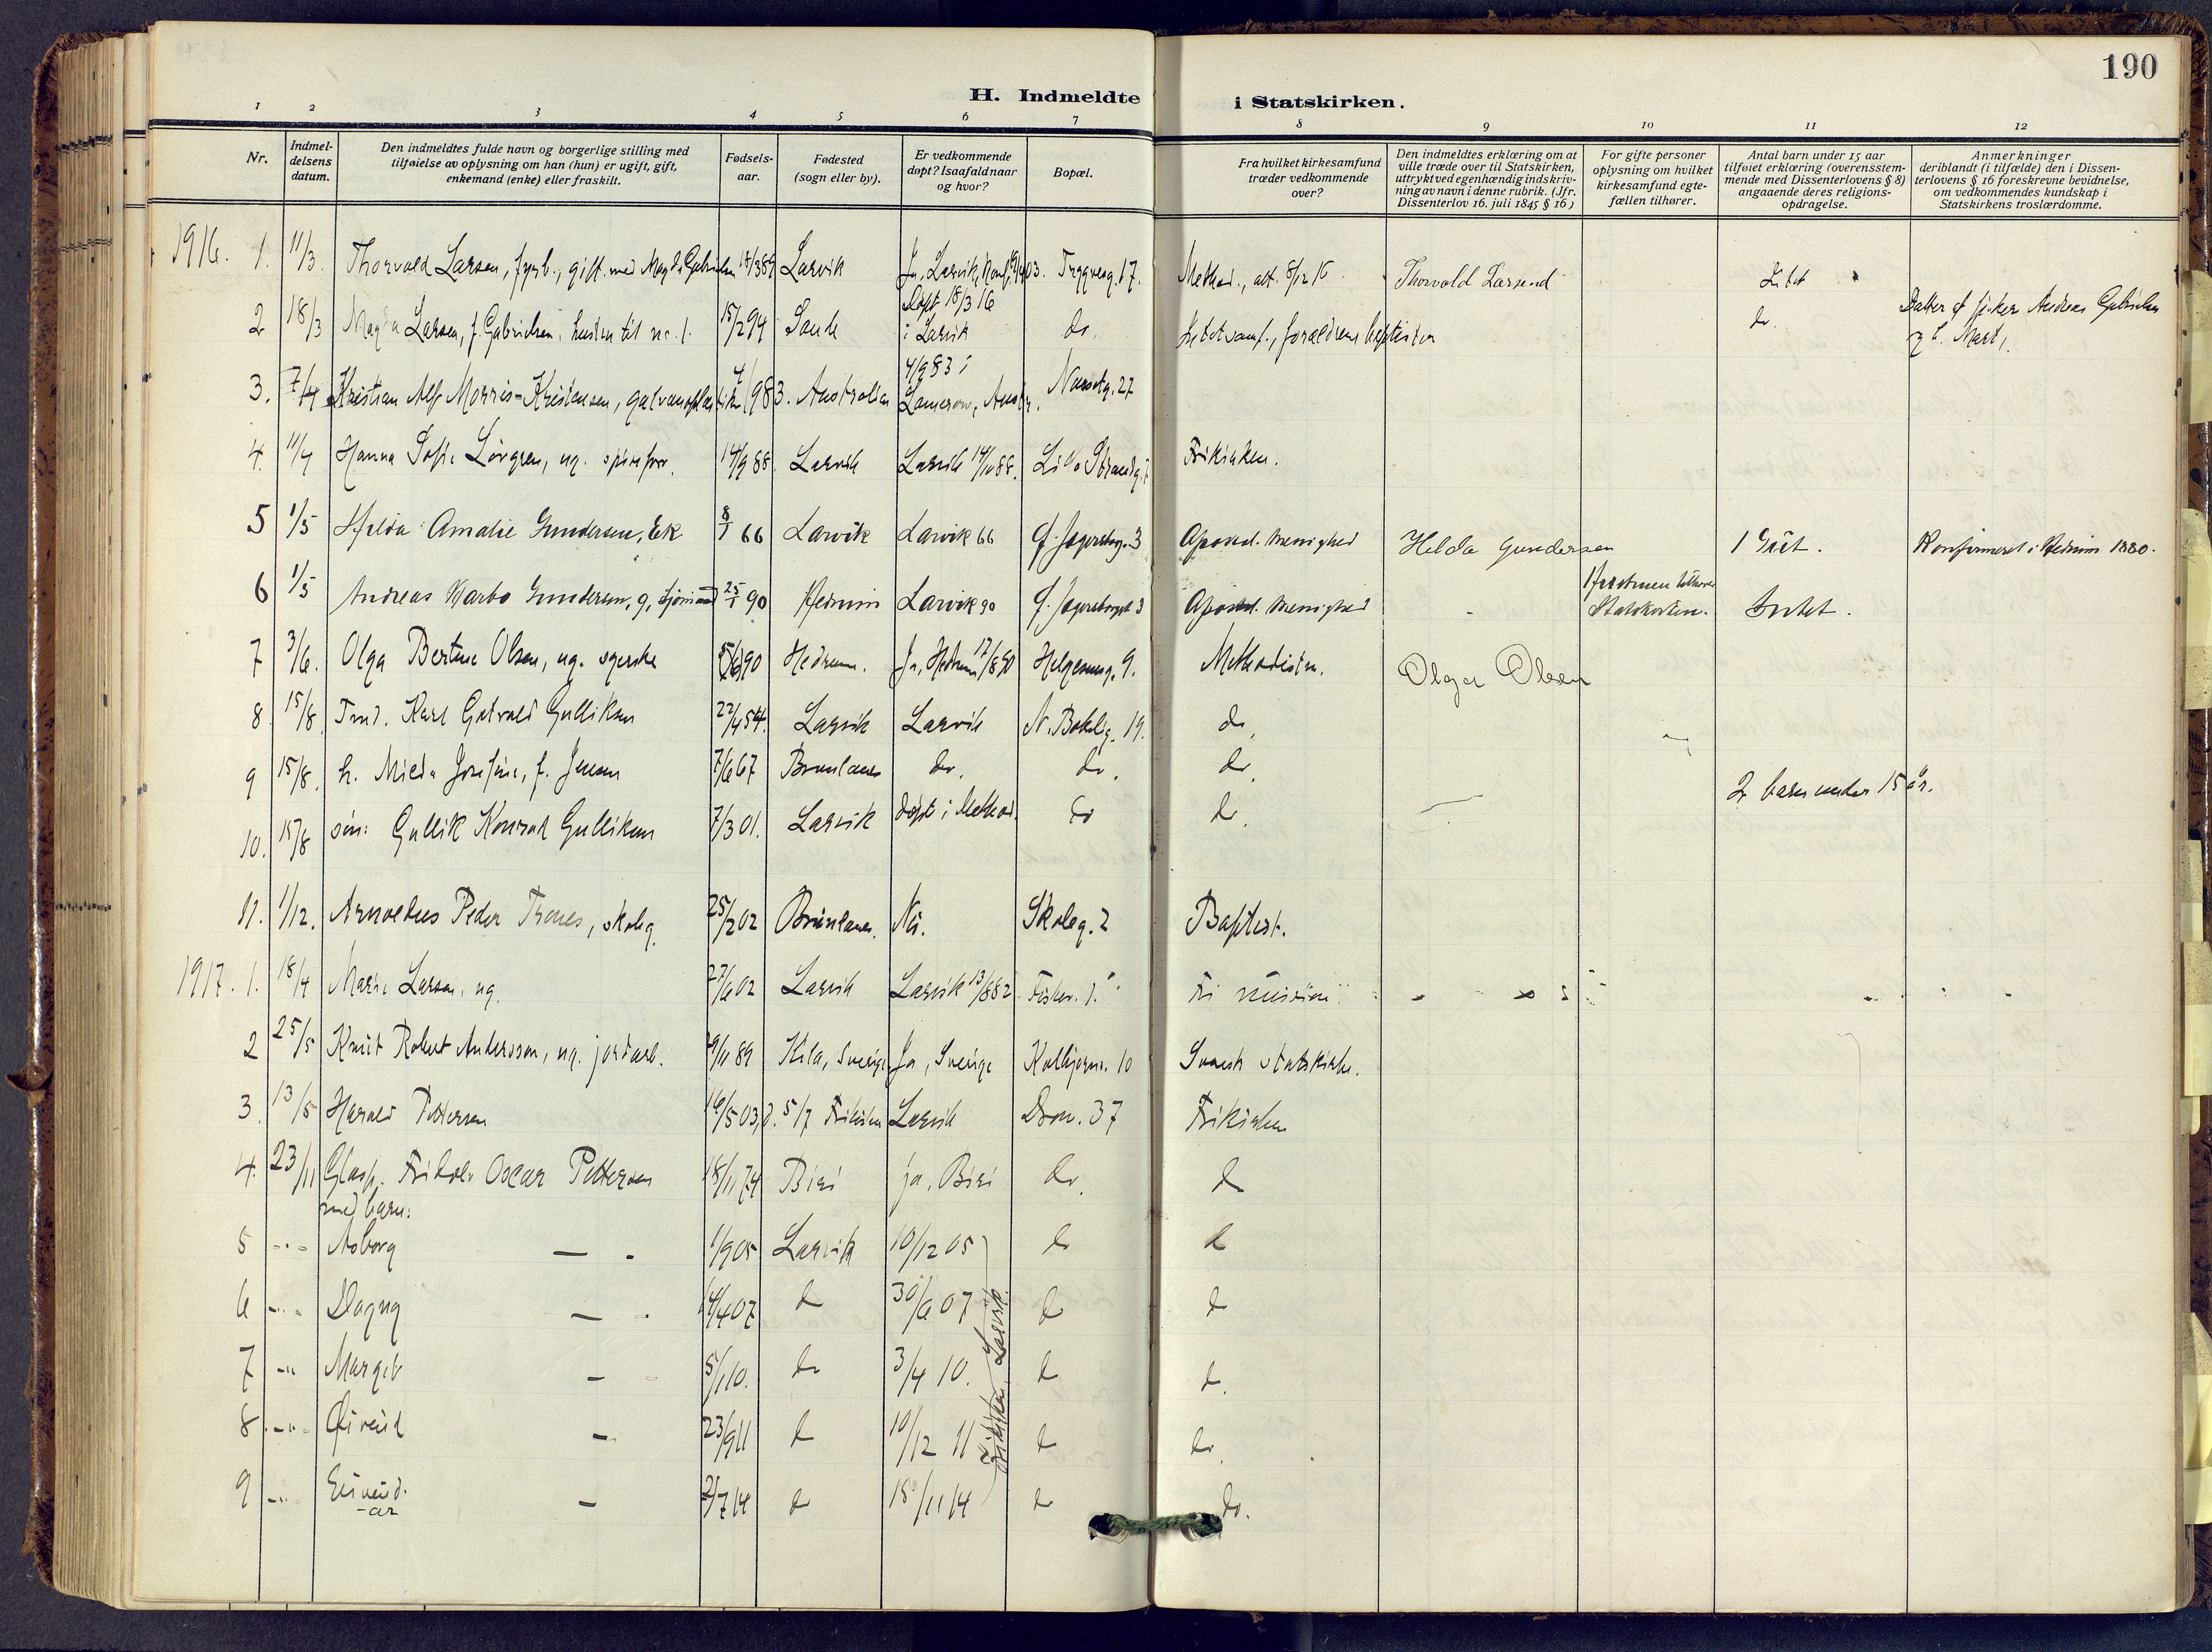 190
H. Indmeldte i Statskirken.
1 2 3 4 5 6 7 8 9 10 11 12
Nr.
Indmel-
delsens
datum.
Den indmeldtes fulde navn og borgerlige stilling med
tilføielse av oplysning om han (hun) er ugift, gift,
enkemand (enke) eller fraskilt.
Fødsels-
aar.
Fødested
(sogn eller by).
Er vedkommende
døpt? Isaafald naar
og hvor?
Bopæl.
Fra hvilket kirkesamfund
træder vedkommende
over?
Den indmeldtes erklæring om at
ville træde over til Statskirken,
uttrykt ved egenhændig indskriv-
ning av navn i denne rubrik. (Jfr.
Dissenterlov 16. juli 1845 § 16)
For gifte personer
oplysning om hvilket
kirkesamfund egte-
fællen tilhører.
Antal barn under 15 aar
tilføiet erklæring (overensstem-
mende med Dissenterlovens § 8)
angaaende deres religions-
opdragelse.
Anmerkninger
deriblandt (i tilfælde) den i Dissen-
terlovens § 16 foreskrevne bevidnelse,
om vedkommendes kundskap i
Statskirkens troslærdomme.
1916. 1. 11/3. Thorvald Larsen, fyrb., gift med Magda Gabrielsen Larvik Ja, Larvik, Tryggveg. 17. Method., Thorvald Larsen
2 18/3 Magda Larsen, f. Gabrielsen, hustru til nr. 1. 15/2 94 døpt 18/3 16 i Larvik do. do. Datter af fisker Andreas Gabrielsen
3. 7/4 Kristian Alf Morris-Kristensen, 4/1 983. Australien 4/9 83 i Nansetg. 27
4. 11/4 Hanna Sofie ug. 14/9 88. Larvik Larvik 14/10 88. Frikirken.
5 1/5 Hilda Amalie Gundersen, Ek 8/1 66 Larvik Larvik 66 Apostol. Menighed Hilda Gundersen Konfirmeret i Hedrum 1880.
6 1/5 Andreas Gundersen, g, sjømand 25/1 90 Hedrum Larvik 90 Apostol. Menighed - Hustruen tilhører Statskirken. Intet.
7 3/6. Olga Bertine Olsen, ug. syerske 90 Hedrum. Ja, Hedrum 17/8 90 Helgesensg. 9. Methodisten. Olga Olsen
8. 15/8 Karl Gotvald Gulliksen 22/4 54. Larvik Larvik 19. do.
9 15/8. h. Milda Josefine, f. Jensen 7/6 67 Brunlanes do. do. do. 2 barn under 15 år.
10. 15/8 søn: Gullik Konrad Gulliksen 7/3 01. Larvik døpt i Method. do do.
11. 1/12. Arnoldus Peder Trones, skoleg. 25/2 02 Brunlanes. Nei. Skoleg. 2 Baptist.
1917. 1. 18/4 Marie Larsen, ug. 27/6 02 Larvik Larvik 13/8 82 Fri mission
2 25/5 Knut Robert Andersson, ug. jordarb. 89 Kila, Sverige Ja, Sverige Kolbjørns. 10 Svensk statskirke.
3. 13/5 Harald Pettersen 16/5 03, d. 5/7 Frikirken Larvik Dron. 37 Frikirken
4. 23/11 Glasm. Fridolv Oscar Pettersen 18/11 74 Biri ja, Biri do. do
med barn:
5 - " - Aaborg — - 1/9 05 Larvik 10/12 05 do do
6 - " - Dagny — - 14/4 07 do 30/6 07 do do
7 - " - Margit - 5/1 10. do 3/4 10. do do.
8 - " - Øivind - 23/9 11 do 10/12 11 do do.
9 - " - Eivind - 7 14 do 15/11 14 do do.
-ar
Frikirken, Larvik.